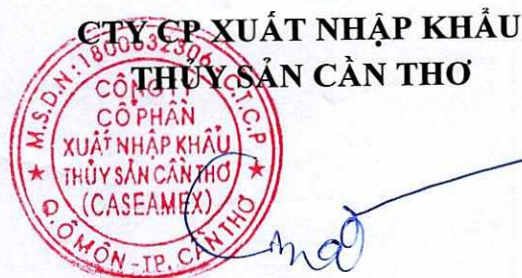 CTY CP XUẤT NHẬP KHẨU
THỦY SẢN CẦN THƠ
M.S.D.N: 1800632306 - C.T.C.P
CÔNG
CỔ PHẦN
XUẤT NHẬP KHẨU
THỦY SẢN CẦN THƠ
(CASEAMEX)
Q. Ô MÔN - TP. CẦN THƠ